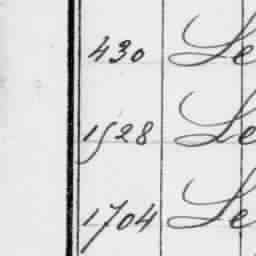 430 Le
1528 Le
1704 Le